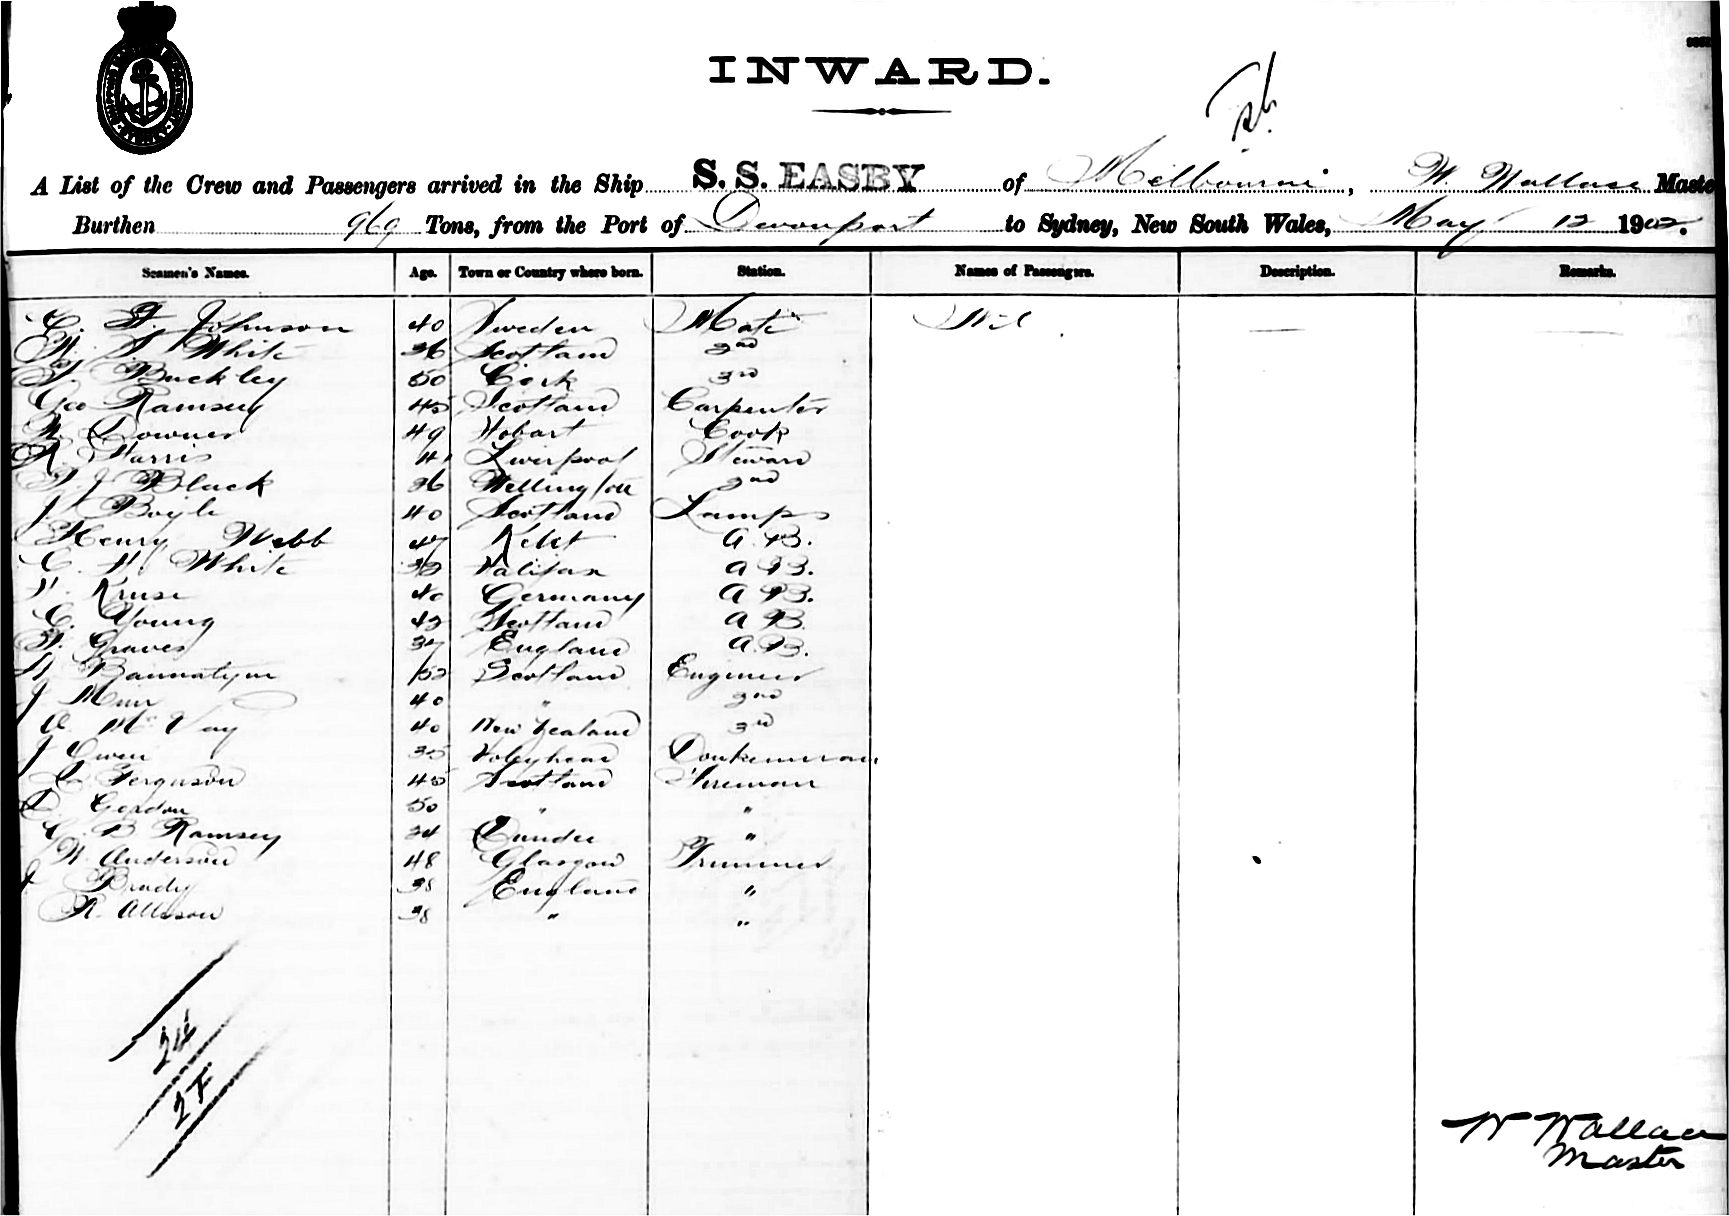 INWARD.
A List of the Crew and Passengers arrived in the Ship S. S. EASBY of Melbourne, W. Wallace Maste
Burthen 969 Tons, from the Port of Devonport to Sydney, New South Wales, May 12 1902.
Seamen's Names. Age. Town or Country where born. Station. Names of Passengers. Description. Remarks.
C. F. Johnson 40 Sweden Mate Nil
White 36 Scotland 2nd
Buckley 50 Cork 3rd
Geo Ramsey 45 Scotland Carpenter
W. Downes 49 Hobart Cook
R Harris 41 Liverpool Steward
Black 26 Wellington 2nd
J Boyle 40 Scotland Lamps
Henry Webb 47 Kent A.B.
C. H. White Halifax A B.
Kruse 40 Germany A B.
C. Young 42 Scotland A B.
Graves 37 England A.B.
Bannatyne 52 Scotland Engineer
J Muir 40 " 2nd
Mc Vay 40 New Zealand 3rd
J Owen 35 Holyhead Donkeyman
Ferguson 45 Scotland Fireman
D. Gordon 50 " "
C B Ramsey 24 Dundee "
W. Anderson 48 Glasgow Trimmer
J Brady 38 England "
R. Allison 38 " "
24
W Wallace
Master